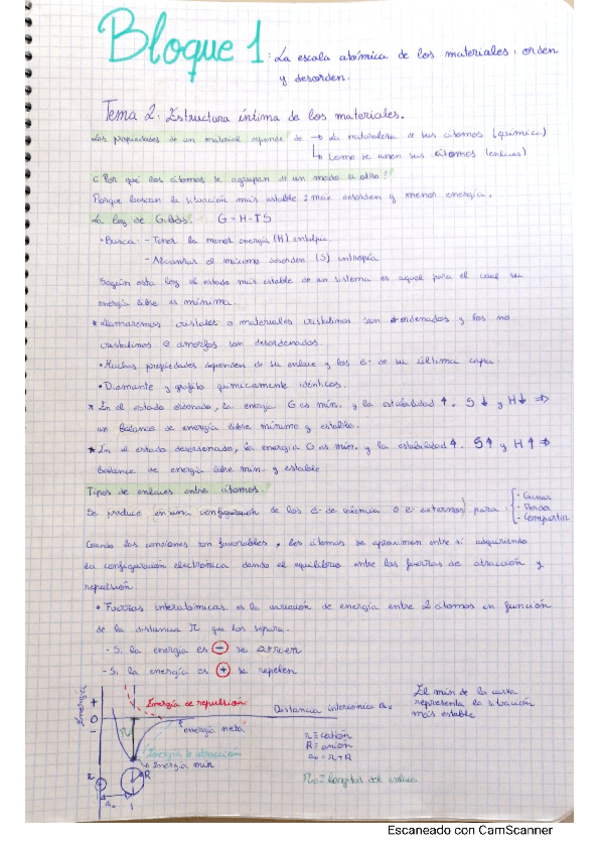 Bloque 1: La escala atómica de los materiales: orden
y desorden.
Tema 2: Estructura íntima de los materiales.
Las propiedades de un material depende de → La naturaleza de sus átomos (química)
↳ Como se unen sus átomos (enlaces)
¿Por qué los átomos se agrupan de un modo u otro?
Porque buscan la situación más estable: max desorden y menor energía.
La ley de Gibbs. G=H-TS
• Busca: - Tener la menor energía (H) entalpia
- Alcanzar el máximo desorden (S) entropía
Según esta ley el estado más estable de un sistema es aquel para el cual su
energía libre es mínima.
* Llamaremos cristales o materiales cristalinos son ordenados y los no
cristalinos o amorfos son desordenados.
• Muchas propiedades dependen de su enlace y los e- de su última capa.
• Diamante y grafito químicamente idénticos.
* En el estado ordenado, la energía G es mín. y la estabilidad ↑. S↓ y H↓ ⇒
un balance de energía libre mínimo y estable.
* En el estado desordenado, la energía G es mín. y la estabilidad ↑. S↑ y H↑ ⇒
balance de energía libre mín. y estable
Tipos de enlaces entre átomos.
Se produce en una configuración de los e- de valencia o e- externos para { - Ganar
- Perder
- Compartir
Cuando las condiciones son favorables, los átomos se aproximan entre sí adquiriendo
la configuración electrónica dando el equilibrio entre las fuerzas de atracción y
repulsión.
• Fuerzas interatómicas es la variación de energía entre 2 átomos en función
de la distancia r que los separa.
- Si la energía es ⊖ se atraen
- Si la energía es ⊕ se repelen
Energía
+
0
-
Energía de repulsión
Distancia interiónica a₀
energía neta
Energía de atracción
Energía mín
r
R
a₀
r = catión
R = anión
a₀ = r + R
r₀ = longitud del enlace
El mín de la curva
representa la situación
más estable
Escaneado con CamScanner